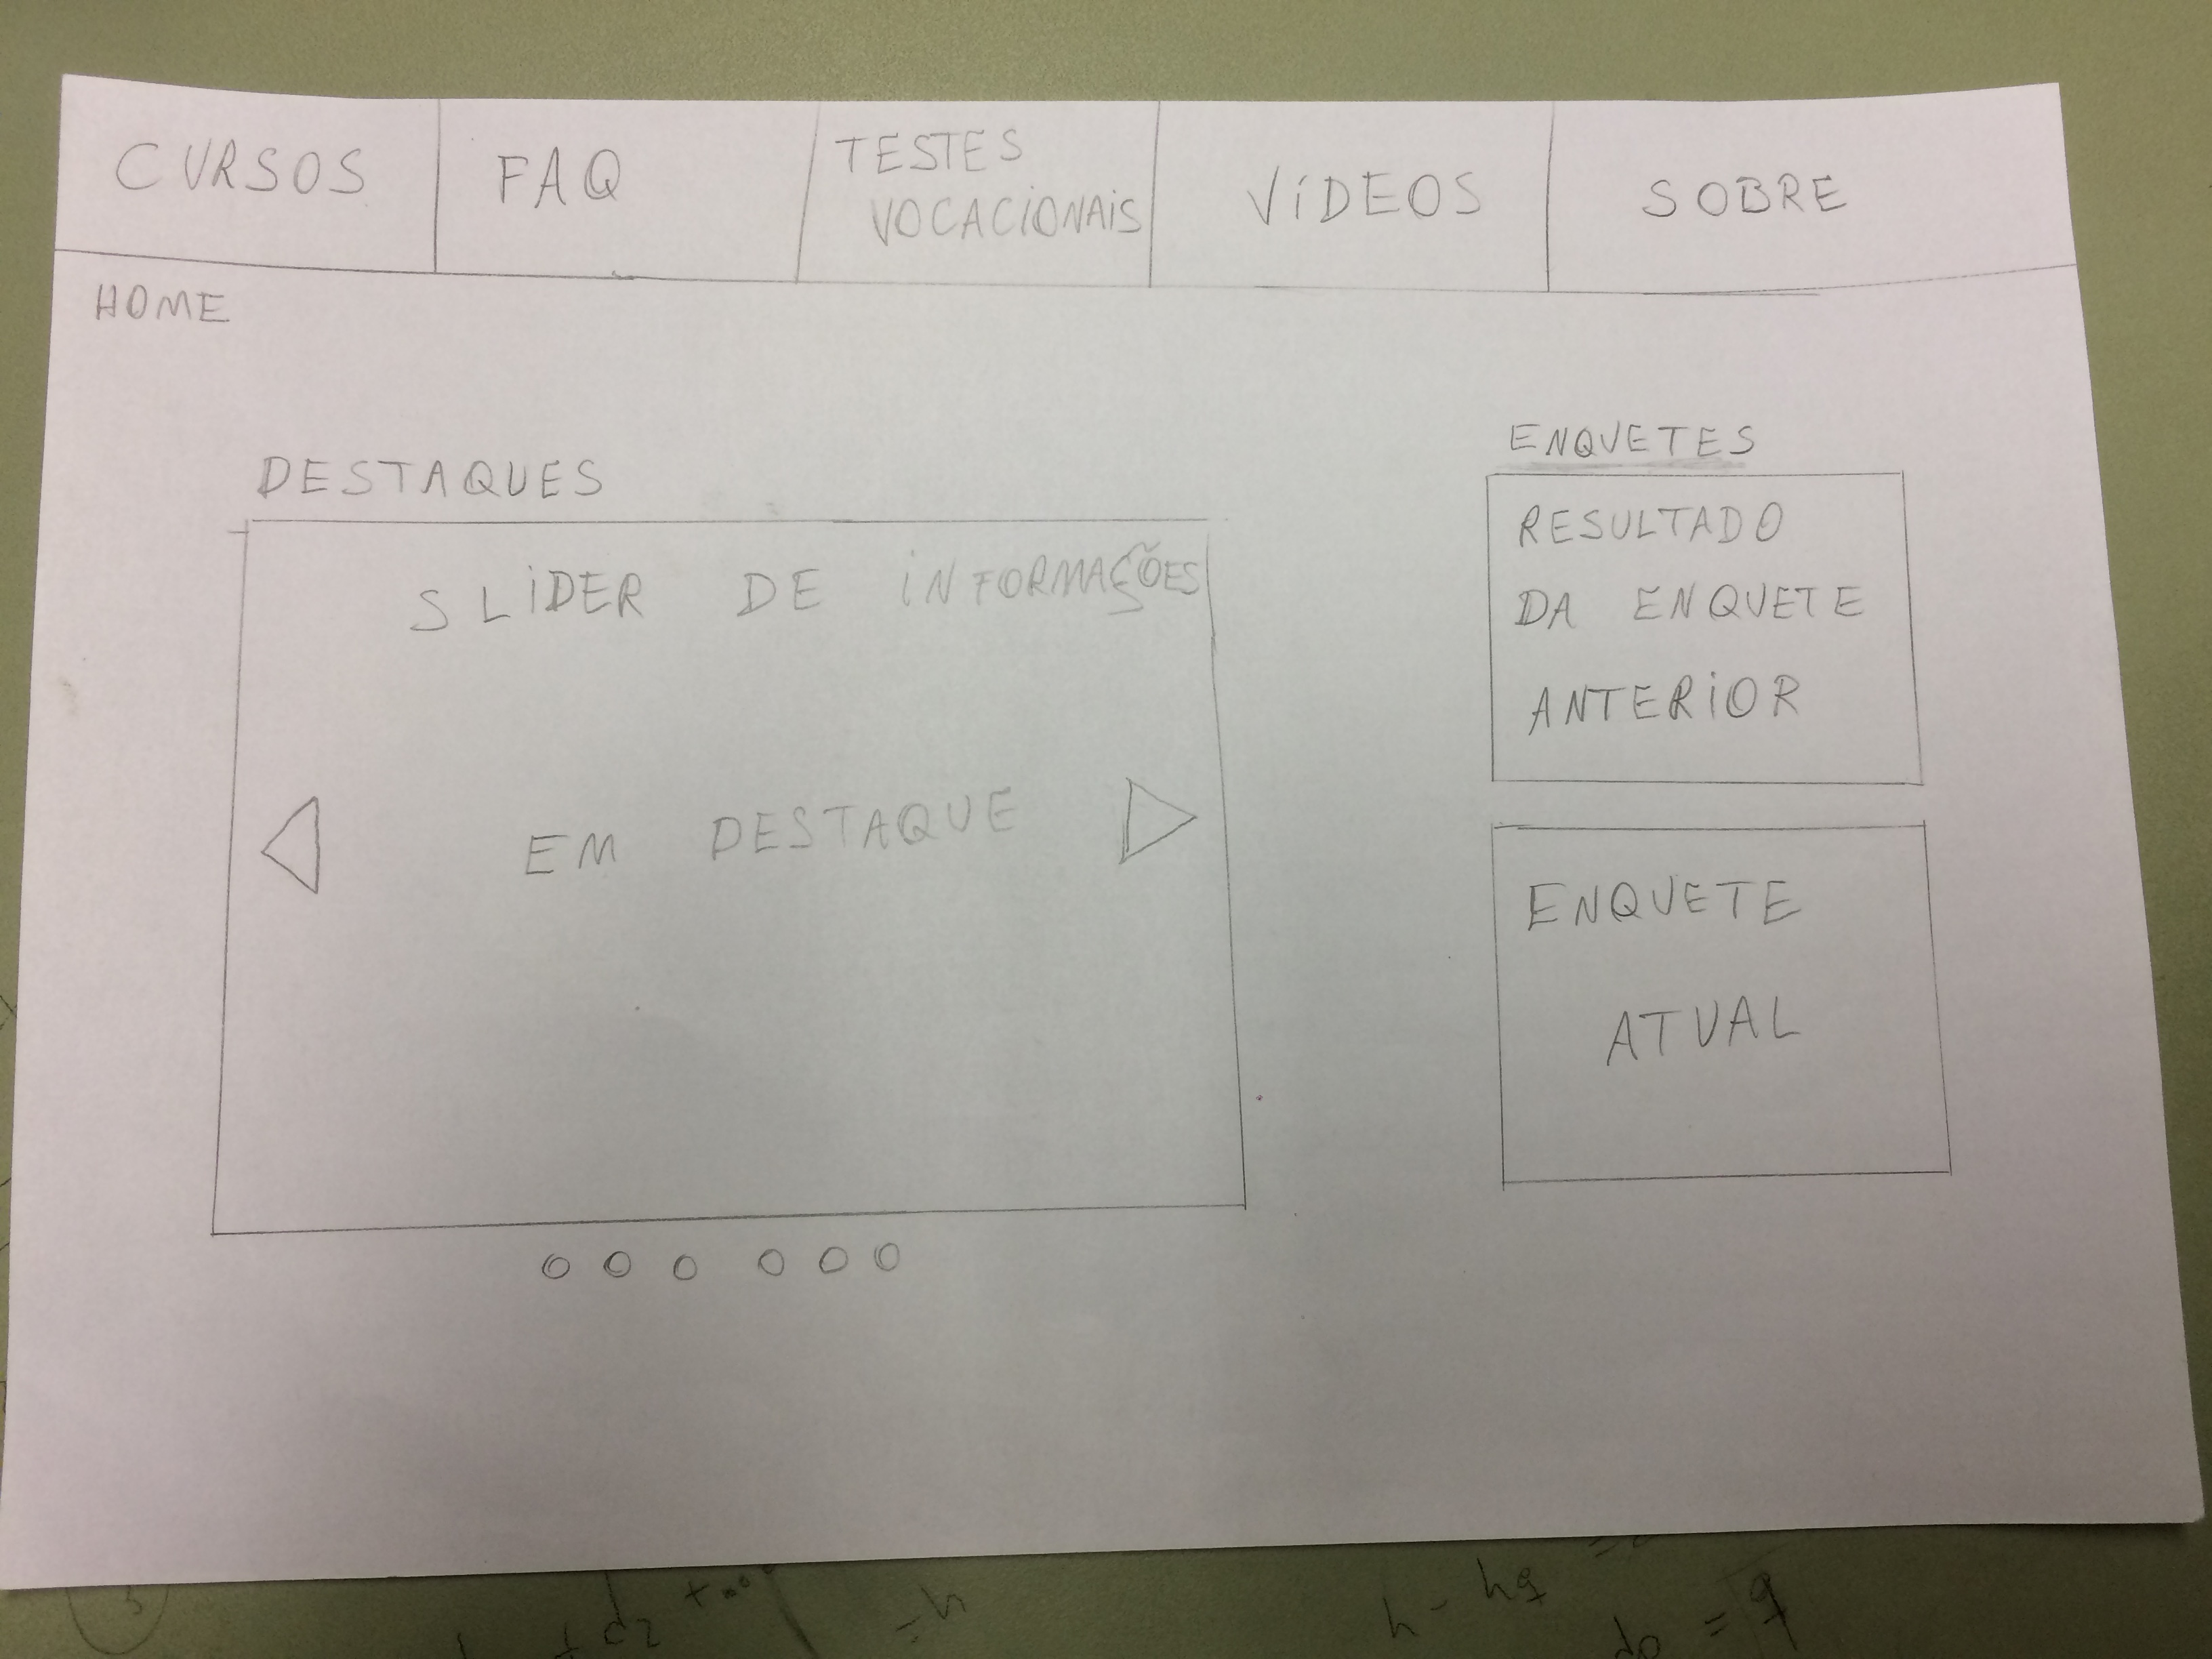 CURSOS
FAQ
TESTES
VOCACIONAIS
VÍDEOS
SOBRE
HOME
DESTAQUES
SLIDER DE INFORMAÇÕES
EM DESTAQUE
ENQUETES
RESULTADO
DA ENQUETE
ANTERIOR
ENQUETE
ATUAL